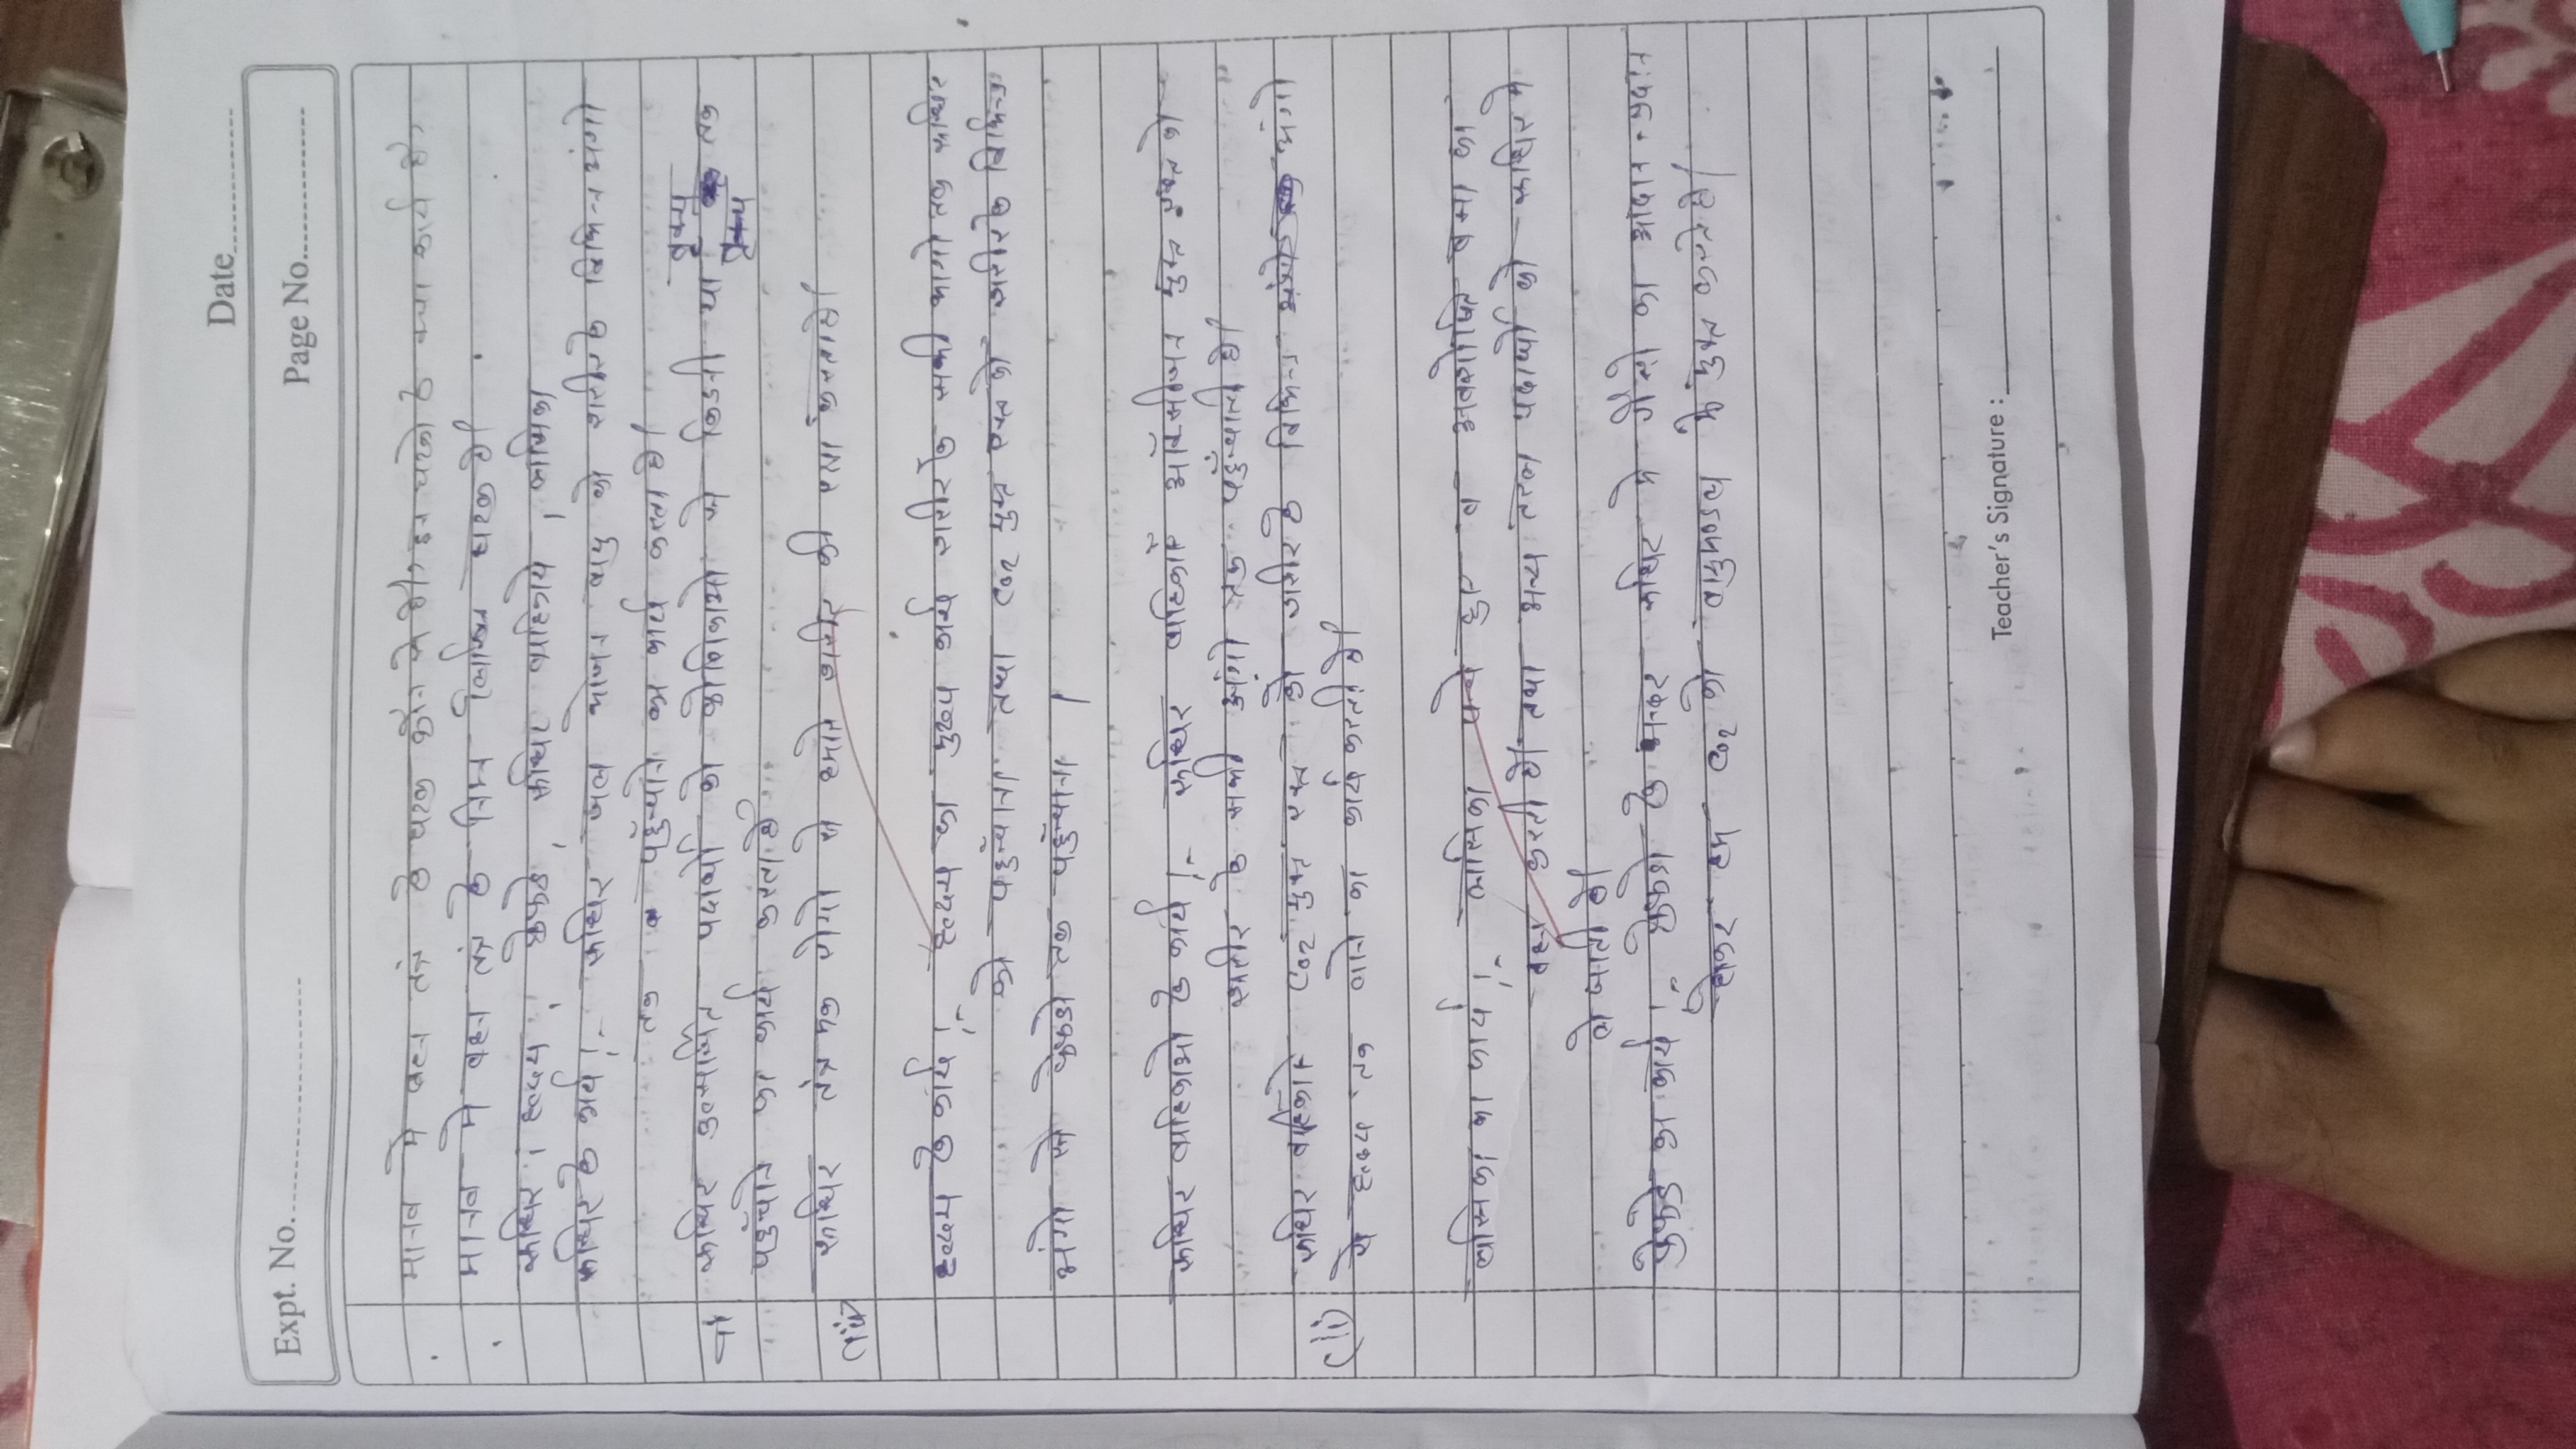 Date
Expt. No.
Page No.
मानव मे वहन तंत्र के घटक कौन से है, इन घटको के क्या कार्य है,
मानव मे वहन तंत्र के निम्न लिखित घटक है।
रूधिर, हृदय, फेफडे, रूधिर वाहिकाये, लसिका
रूधिर के कार्य :- रूधिर जल भोजन वायु को शरीर के विभिन्न अंगो
तक पहुँचाने का कार्य करता है।
वृक्क
रूधिर उत्सर्जित पदार्थो को कोशिकाओ से किडनी या तक
पहुँचाने का कार्य करता है
(iii) रूधिर रोगो से हमारे शरीर की रक्षा करता है।
हृदय के कार्य :- हृदय का मुख्य कार्य शरीर के सभी भागो तक रूधिर
को पहुँचाना तथा CO2 युक्त रक्त को शरीर के विभिन्न
अंगो से फेफडो तक पहुँचाना ।
रूधिर वाहिकाओ के कार्य :- रूधिर वाहिकाऐं ऑक्सीजन युक्त रक्त को
शरीर के सभी अंगो तक पहुँचाती है।
(ii) रूधिर वाहिकाऐं CO2 युक्त रक्त को शरीर के विभिन्न अंगो
से हृदय तक लाने का कार्य करती है।
लसिका का कार्य :- लसिका पचे हुए व अवशोषित वसा का
वहन करती है तथा अन्य तरल पदार्थो को रूधिर मे
ले जाती है।
फेफडे का कार्य :- फेफडो के अन्दर रूधिर मे गैसो का आदान-प्रदान
होकर हम CO2 को वायुमण्डल मे मुक्त करते है।
Teacher's Signature :